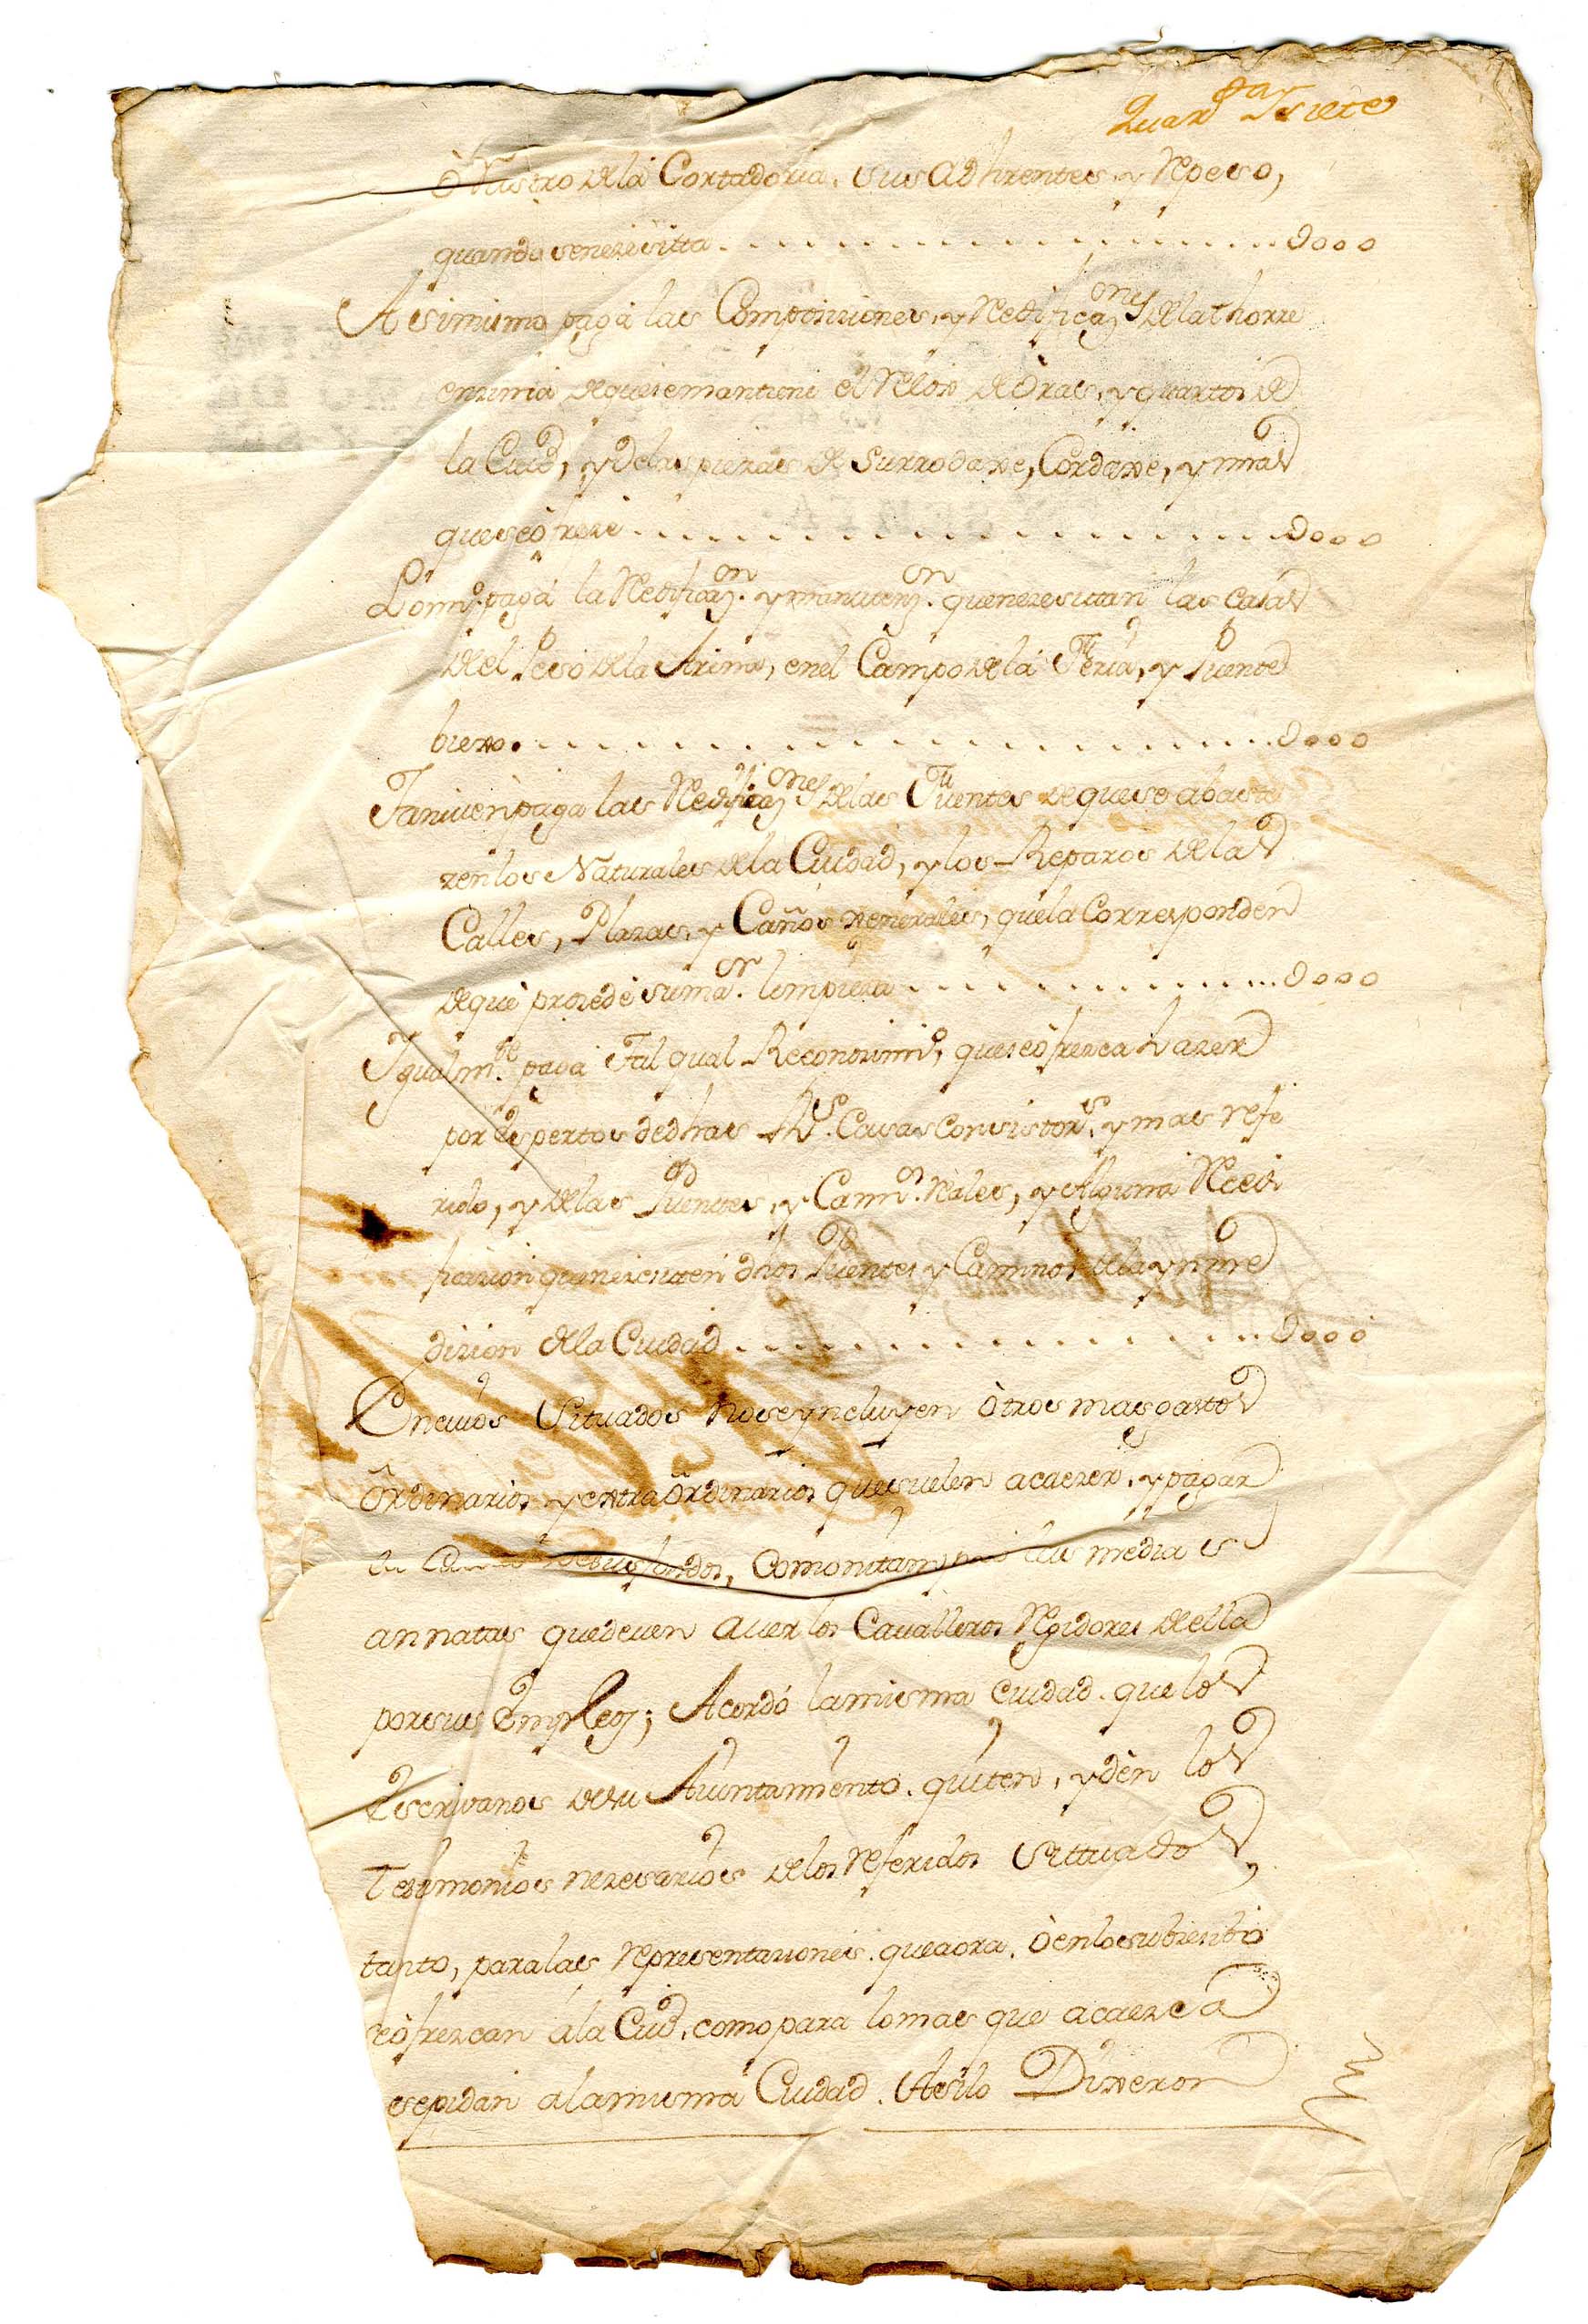 Quar.ta y siete
ò Rastro de la Cortadoria, sus adhrentes, y Repeso,
quando senezesitta . . . . . . . . . . . . . . . . . . . . . . . . . . . . . . . . . . 0000
Asimismo paga las Composiziones, y Redificaz.ones dela thorre
enzima deque semantiene el Relox de Oras, y quartos de
la Ciud, ydelas piezas de Surrodaxe, Cordaxe, y mas
queseofreze . . . . . . . . . . . . . . . . . . . . . . . . . . . . . . . . . . 0000
Lomis.o paga la Redificaz.on y manutenz.on quenezesitan las casas
del Peso dela Arina, enel Campo dela Feria, y Puente
biexo . . . . . . . . . . . . . . . . . . . . . . . . . . . . . . . . . . 0000
Tanvien paga las Redificaz.ones delas Fuentes deque se abaste
zen los Naturales dela Ciudad, y los Reparos delas
Calles, Plazas, y Caños xenerales, quela Corresponden
deque prozede suma.or limpieza . . . . . . . . . . . . . . . . 0000
Igualm.te paga Tal qual Reconozimi.o, queseofrezca hazer
por espertos dedhas R.s Casas consistor.s, y mas refe
rido, y delas Puentes, y Camin.s Reales, y Alguna Reedi
ficazion quenezesiten dhos Puentes y Caminos dela ynme
dizion dela Ciudad . . . . . . . . . . . . . . . . . . . . . . . . . . 0000
Encuios Situados nose yncluyen òtros mas gastos
ôrdinarios y extraôrdinarios que suelen acaezer, y pagar
la desus fondos, Como las media s
annatas quedeven aver los Cavalleros Rexidores della
por sus Empleos; Acordó lamisma Ciudad que los
Escrivanos desu Aiuntamiento quiten, y dèn los
Testimonios nezesarios delos referidos Sittuados,
tanto, para las representaziones que aora, ò enlosubzesibo
seofrezcan àla Ciud, como para lo mas que acaezca
esepidan alamisma Ciudad. Asilo Dixeron